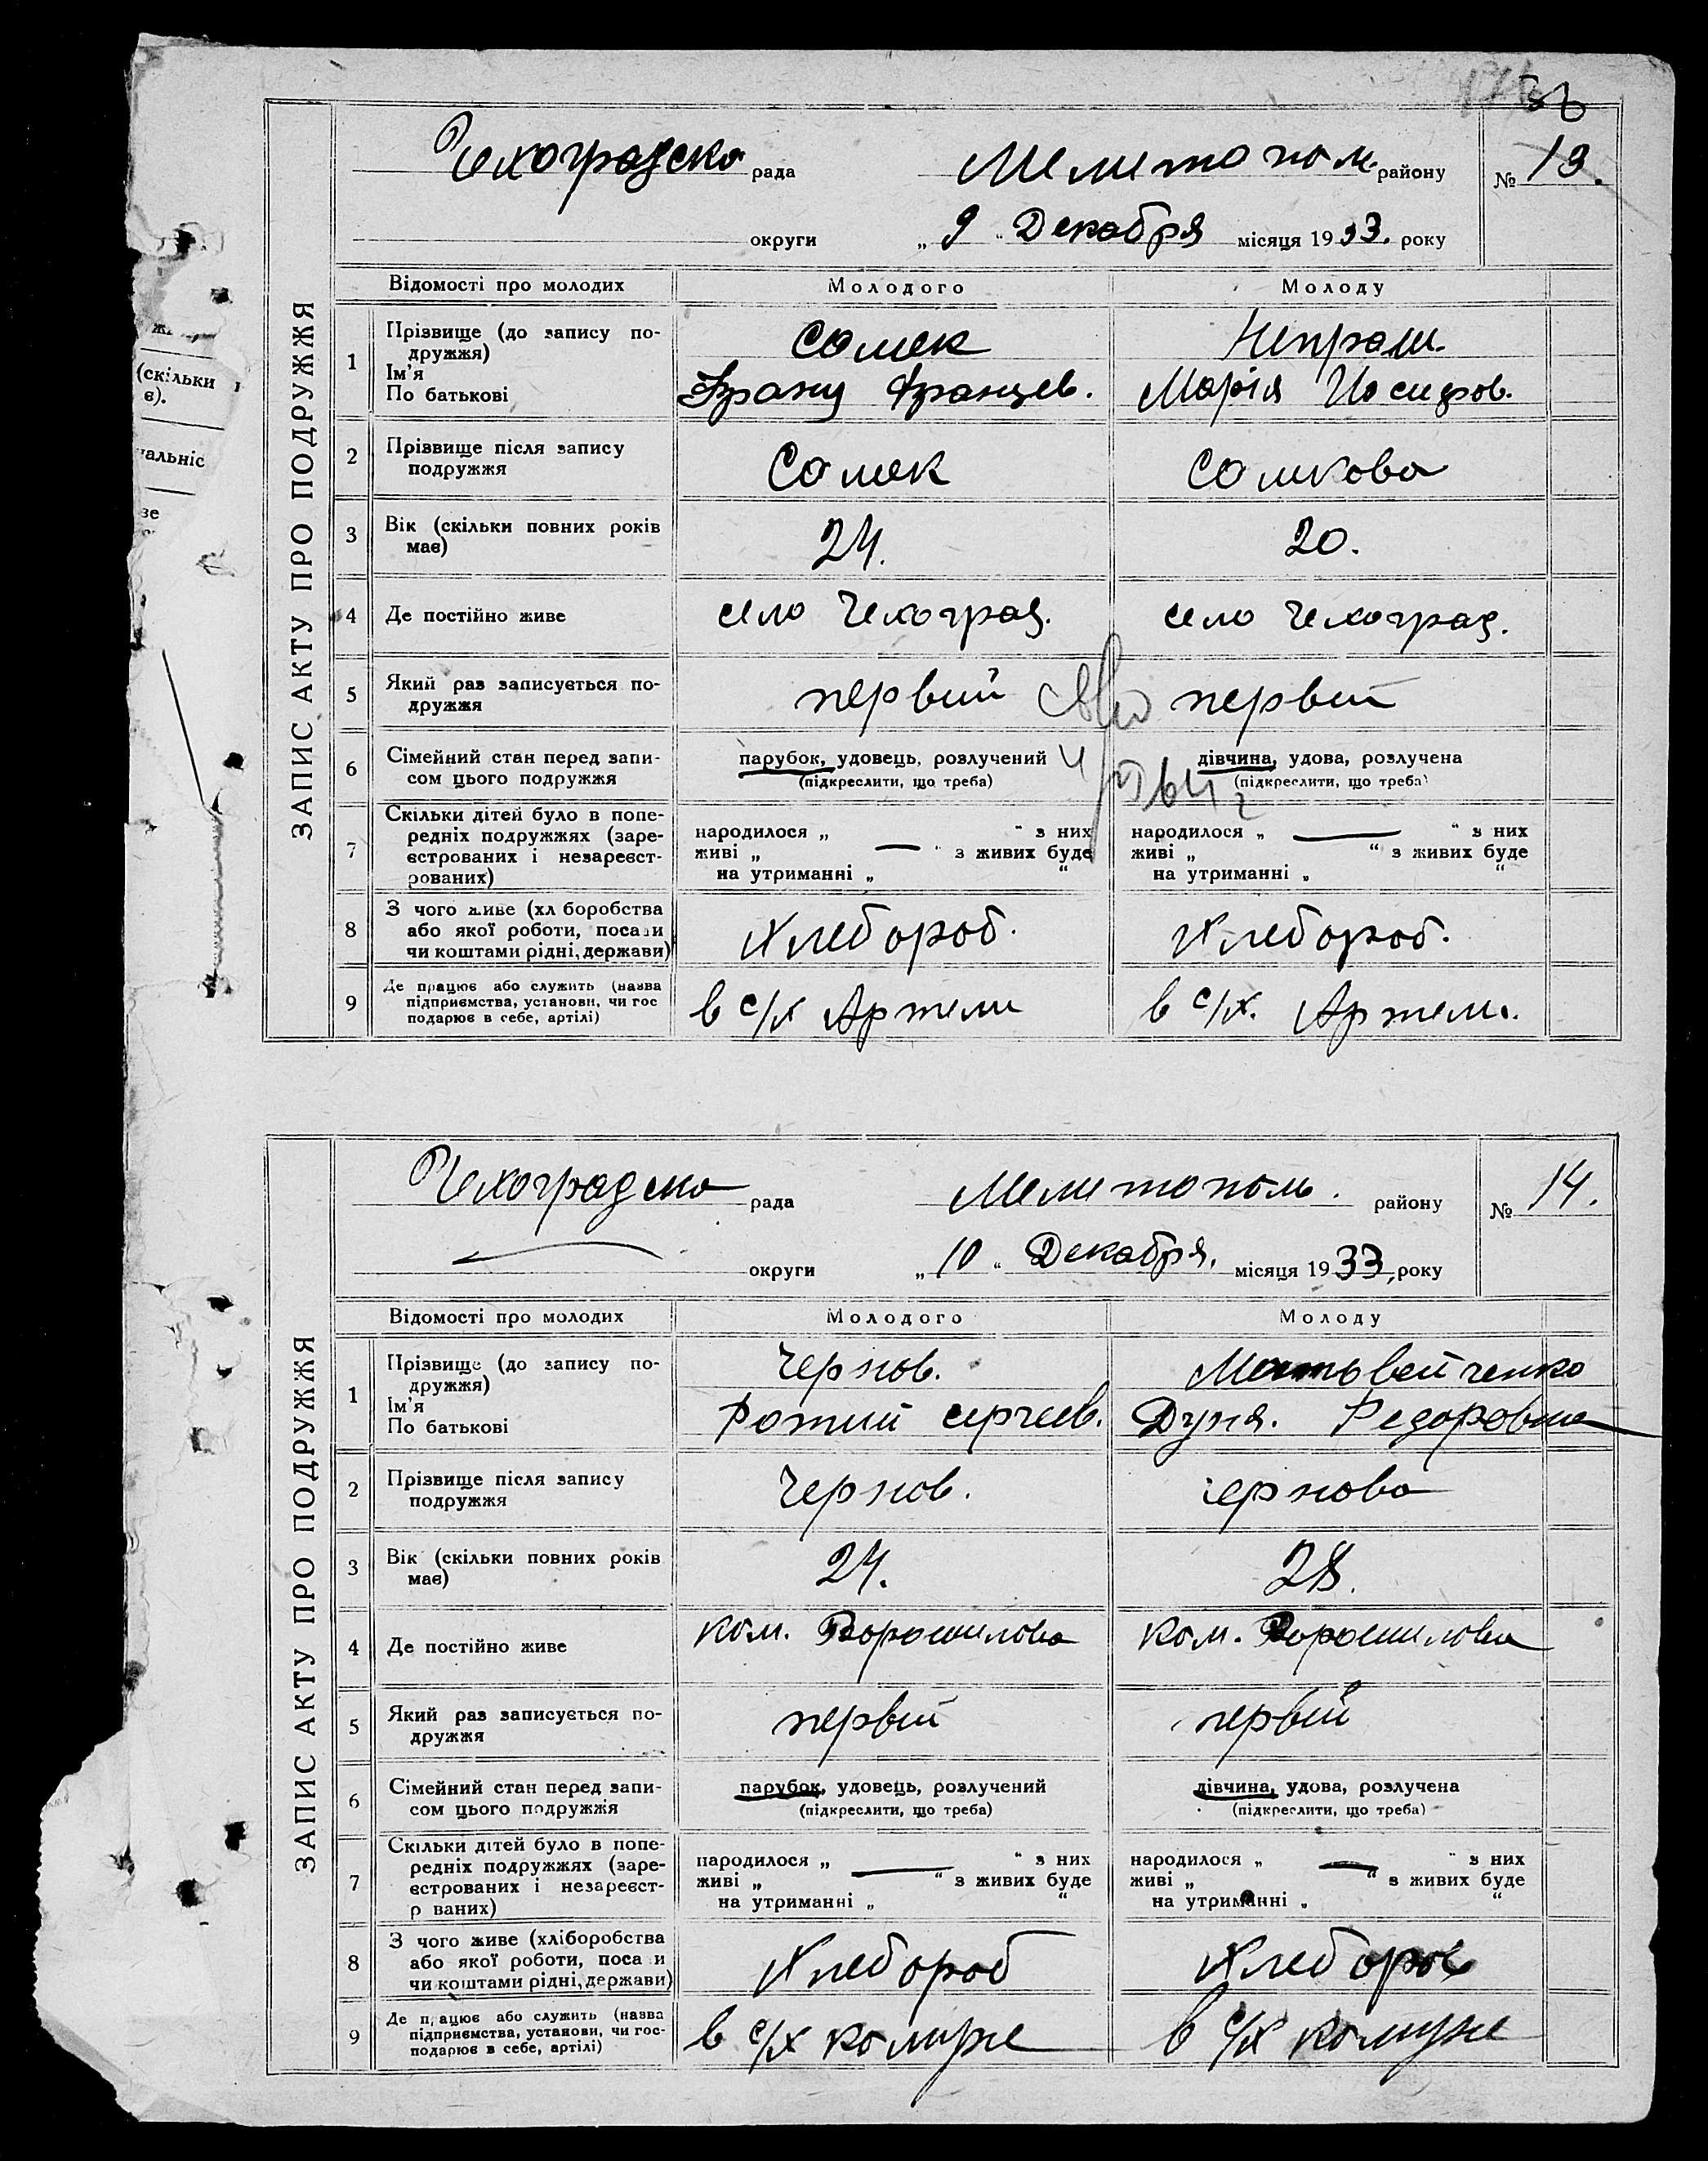 56
Чехоградска рада Мелитопол. району № 13.
округи „ 9 “ Декабря місяця 1933. року
ЗАПИС АКТУ ПРО ПОДРУЖЖЯ
Відомості про молодих Молодого Молоду
1 Прізвище (до запису по-
дружжя)
Ім’я
По батькові
Сомек
Франц Францев.
Марія Иосифов.
2 Прізвище після запису
подружжя
Сомек Сомкова
3 Вік (скільки повних років
має)
24. 20.
4 Де постійно живе село Чехоград. село Чехоград.
5 Який раз записується по-
дружжя
первий первий
6 Сімейний стан перед запи-
сом цього подружжя
парубок, удовець, розлучений дівчина, удова, розлучена
(підкреслити, що треба) (підкреслити, що треба)
7 Скільки дітей було в попе-
редніх подружжях (заре-
єстрованих і незареєст-
рованих)
народилося „ — “ з них народилося „ — “ з них
живі „ “ з живих буде живі „ “ з живих буде
на утриманні „ “ на утриманні „ “
8 З чого живе (хл боробства
або якої роботи, посади
чи коштами рідні, держави)
Хлебороб. Хлебороб.
9 Де працює або служить (назва
підприємства, установи, чи гос
подарює в себе, артілі)
в с/х Артели в с/х. Артели.
(скільки
є).
альніс
Чехоградска рада Мелитополь. району № 14.
округи „ 10 “ Декабря. місяця 1933, року
ЗАПИС АКТУ ПРО ПОДРУЖЖЯ
Відомості про молодих Молодого Молоду
1 Прізвище (до запису по-
дружжя)
Ім’я
По батькові
Чернов. Матьвейченко
Фотий сергеев. Дуня. Федоровна
2 Прізвище після запису
подружжя
Чернов. Чернова
3 Вік (скільки повних років
має)
24. 28.
4 Де постійно живе ком. Ворошилова ком. Ворошилова
5 Який раз записується по-
дружжя
первий первий
6 Сімейний стан перед запи-
сом цього подружжя
парубок, удовець, розлучений дівчина, удова, розлучена
(підкреслити, що треба) (підкреслити, що треба)
7 Скільки дітей було в попе-
редніх подружжях (заре-
єстрованих і незареєст-
р ваних)
народилося „ — “ з них народилося „ — “ з них
живі „ “ з живих буде живі „ “ з живих буде
на утриманні „ “ на утриманні „ “
8 З чого живе (хліборобства
або якої роботи, поса и
чи коштами рідні, держави)
Хлебороб Хлебороб
9 Де працює або служить (назва
підприємства, установи, чи гос-
подарює в себе, артілі)
в с/х комуне в с/х комуне